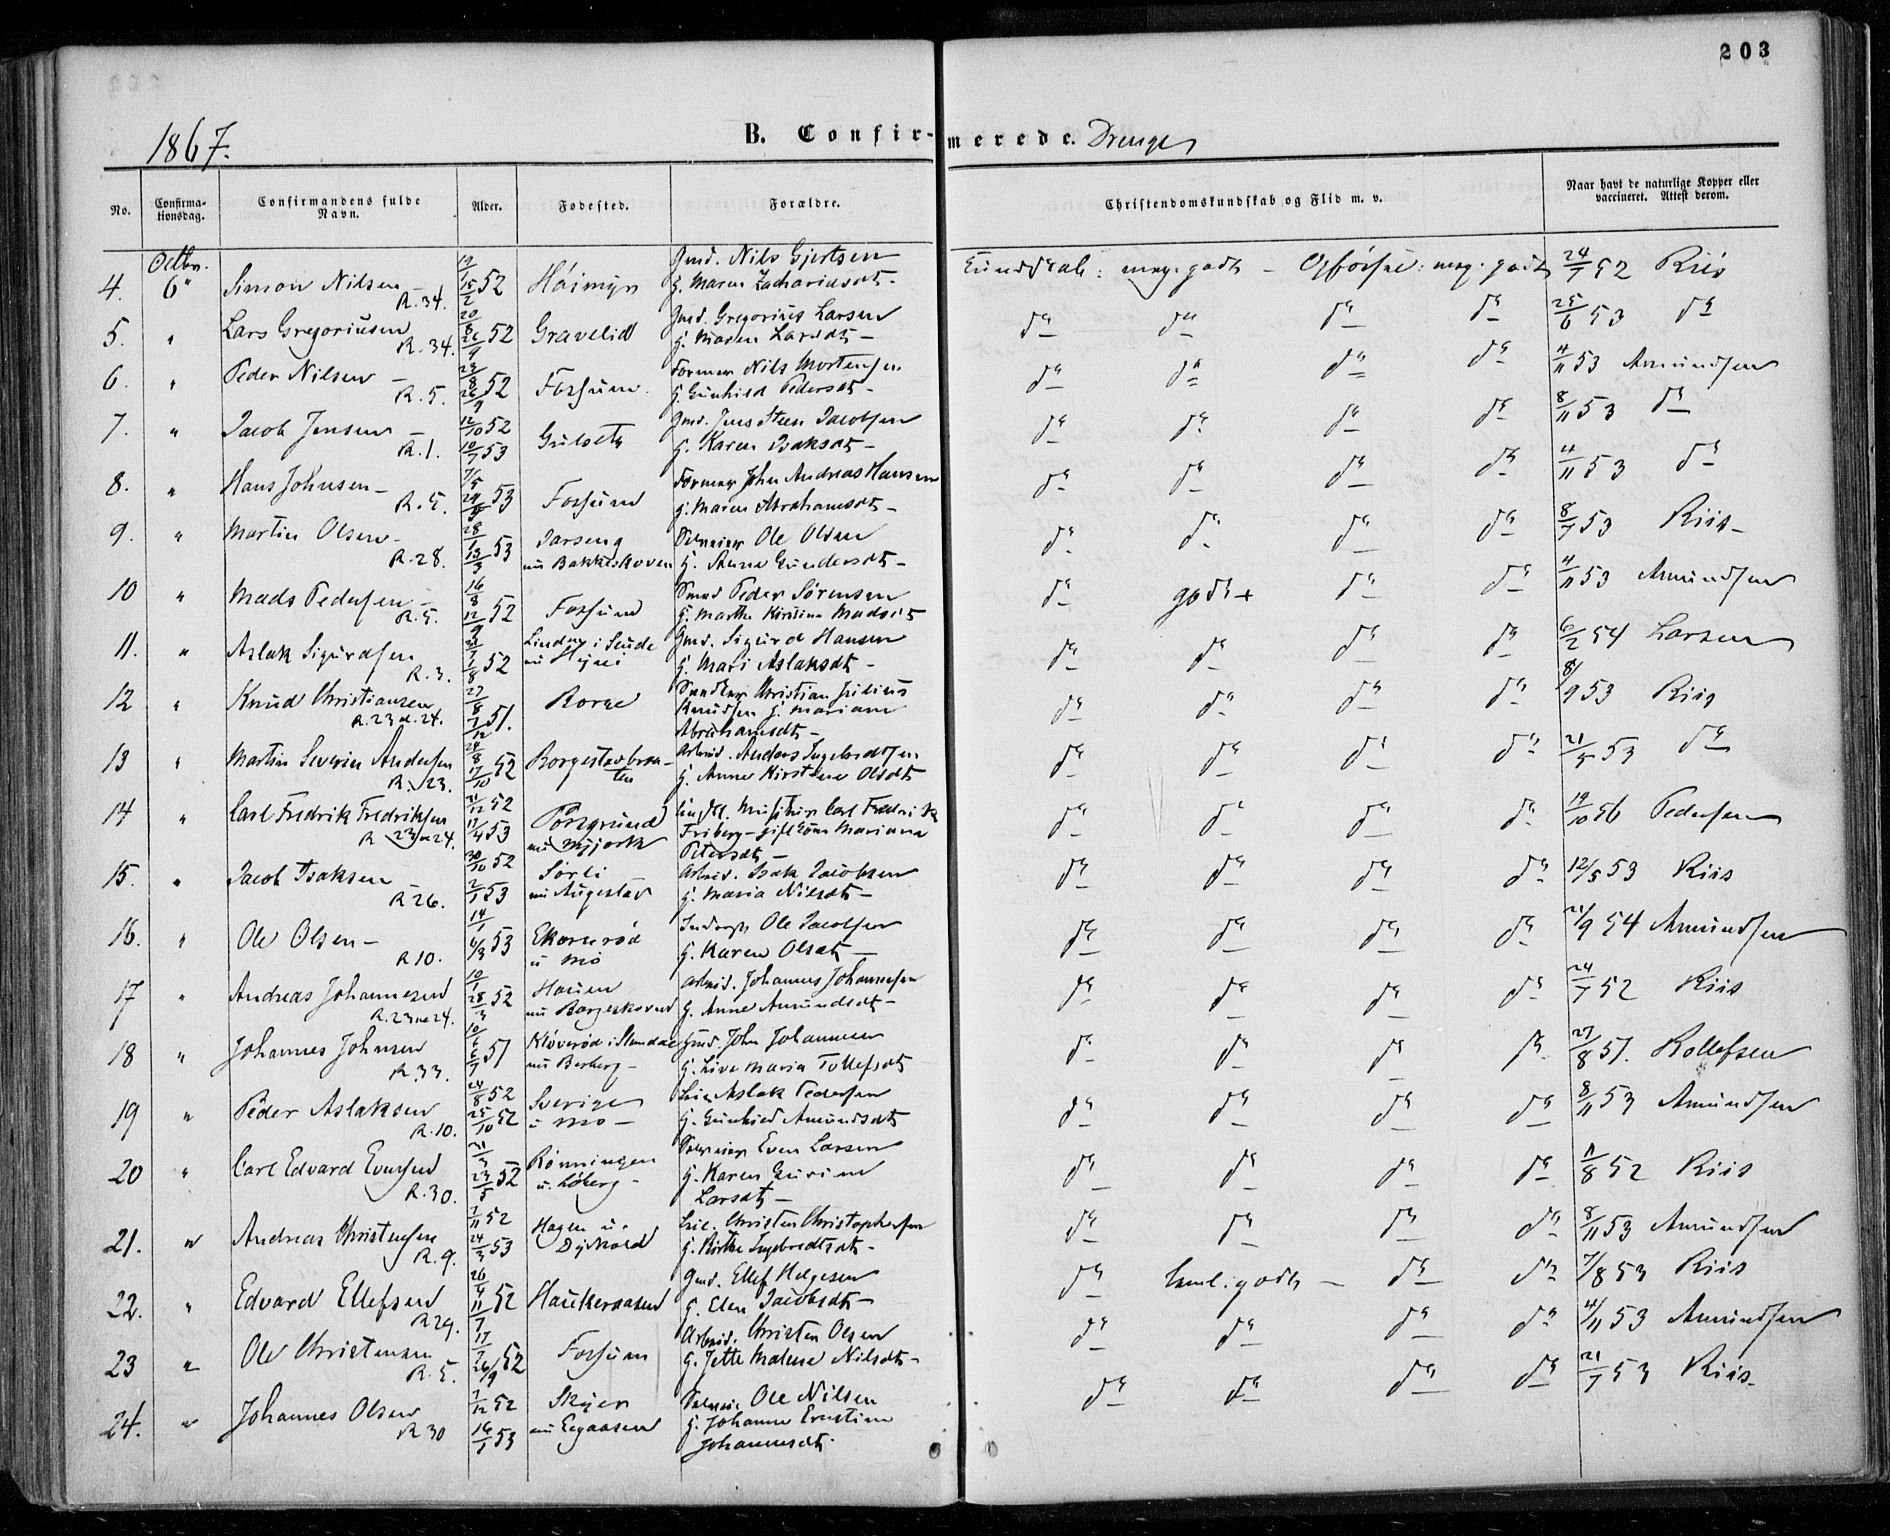 203
1867.
B. Confirmerede. Drenge
No.
Confirmationsdag.
Confirmandens fulde Navn.
Alder.
Fødested.
Forældre.
Christendomskundskab og Flid m. v.
Naar havt de naturlige Kopper eller vaccineret. Attest derom.
Octbr.
4. 6" Simon Nilsen R. 34. 15/2 52 Gmd. Nils Gjertsen
G. Maren Zachariasdt. Kundskab: meg. godt - Opførsel: meg. godt 24/7 52 Riis
5. " Lars Gregoriusen R. 34. 52 Gravelid Gmd. Gregorius Larsen
G. Maren Larsdt. d° d° d° d° 25/6 53 d°
6. " Peder Nilsen R. 5. 26/9 52 Fossum Former Nils Mortensen
G. Gunhild Pedersdt. d° d° d° d° 4/11 53 Amundsen
7. " Jacob Jensen R. 1. 12/10 52 10/7 53 Gulseth Gmd. Jens Steen Jacobsen
G. Karen Isaksdt. d° d° d° d° 8/11 53 d°
8. " Hans Johnsen R. 5. 7/5 53 Fossum Former John Andreas Hansen
G. Maren Abrahamsdt. d° d° d° d° 4/11 53 d°
9. " Martin Olsen R. 28. 28/1 13/3 53 nu Bakkeskoven Ole Olsen
G. Anne Gundersdt. d° d° d° d° 8/7 53 Riis
10 " Mads Pedersen R. 5. 16/8 12/9 52 Fossum Smed Peder Sørensen
G. Marthe Kirstine Madsdt. d° godt + d° d° 4/11 53 Amundsen
11. " Aslak Sigurdsen R. 3. 1/8 52 i Seude
nu Gmd. Sigurd Hansen
G. Mari Aslaksdt. d° d° d° d° 6/2 54 Larsen
12 " Knud Christiansen R. 23 & 24. 27/8 7/12 51. Borge Christian Julius
Knudsen G. Mariane
Abrahamsdt. d° d° d° d° 8/9 53 Riis
13 " Martin Severin Andersen R. 23. 24/8 17/10 52 Borgestadbraaten Arbeid. Anders Ingebredtsen
G. Anne Kirstine Olsdt. d° d° d° d° 21/5 53 d°
14 " Carl Fredrik Fredriksen R 23 & 24. 21/12 52 17/4 53 Porsgrund
nu Carl Fredrik
Friberg - Mariane
Petersdt. d° d° d° d° 19/10 56 Pedersen
15. " Jacob Isaksen R 26. 30/10 52 2/1 53 Sørli
nu Augestad Arbeid. Isak Jacobsen
G. Maria Nilsdt. d° d° d° d° 12/5 53 Riis
16. " Ole Olsen R 10. 14/1 6/3 53 Ekornrød
u Mo Ole Jacobsen
G. Karen Olsdt. d° d° d° d° 21/9 54 Amundsen
17 " Andreas Johannesen R. 23 & 24. 10/1 28/3 52 Hauen
nu Borgeskoven Arbeid. Johannes Johannesen
G. Anne Amundsdt. d° d° d° d° 24/7 52 Riis
18 " Johannes Johnsen R. 33. 10/6 6/7 51 Kløverød i Slemdal
nu Berberg Gmd. John Johannesen
G. Live Maria Tollefsdt. d° d° d° d° 27/8 51. Rollefsen
19 " Peder Aslaksen R. 10. 24/8 52 25/10 52 Sverige
u Mo Aslak Pedersen
G. Gunhild Amundsdt. d° d° d° d° 8/11 53 Amundsen
20 " Carl Edvard Evensen R. 30. 21/3 23/5 52 Rønningen
u. Løberg Even Larsen
G. Karen Gurine
Larsdt. d° d° d° d° 11/8 52 Riis
21. " Andreas Christensen R. 9. 7/11 52 24/3 53 Hagen u.
Christen Christophersen
G. Kirthe Ingebredtsdt. d° d° d° d° 8/11 53 Amundsen
22. " Edvard Ellefsen R 29. 26/4 11/7 52 Haukeraasen Gmd. Ellef Helgesen
G. Elen Jacobsdt. d° teml. godt - d° d° 7/8 53 Riis
23 " Ole Christensen R. 5. 17/7 26/9 52 Fossum Arbeid. Christen Olsen
G. Jette Malene Nilsdt. d° d° d° d° 4/11 53 Amundsen
24. " Johannes Olsen R 30 7/12 52 16/1 53 Skyer
nu Eegaasen Ole Nilsen
G. Johanne Ernstine
Johannesdt. d° d° d° d° 21/7 53 Riis